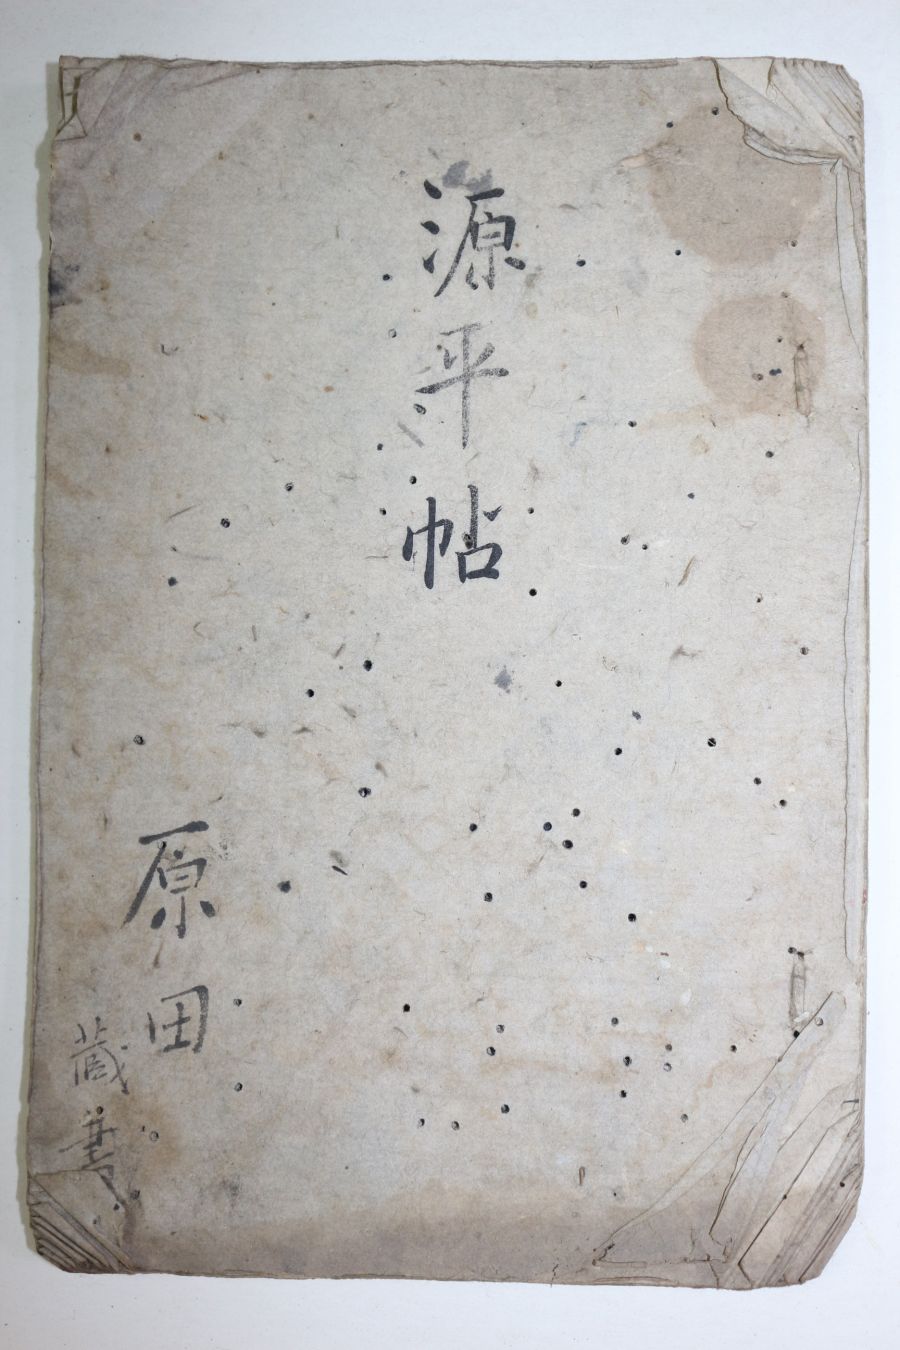 源平帖
原田
蔵書